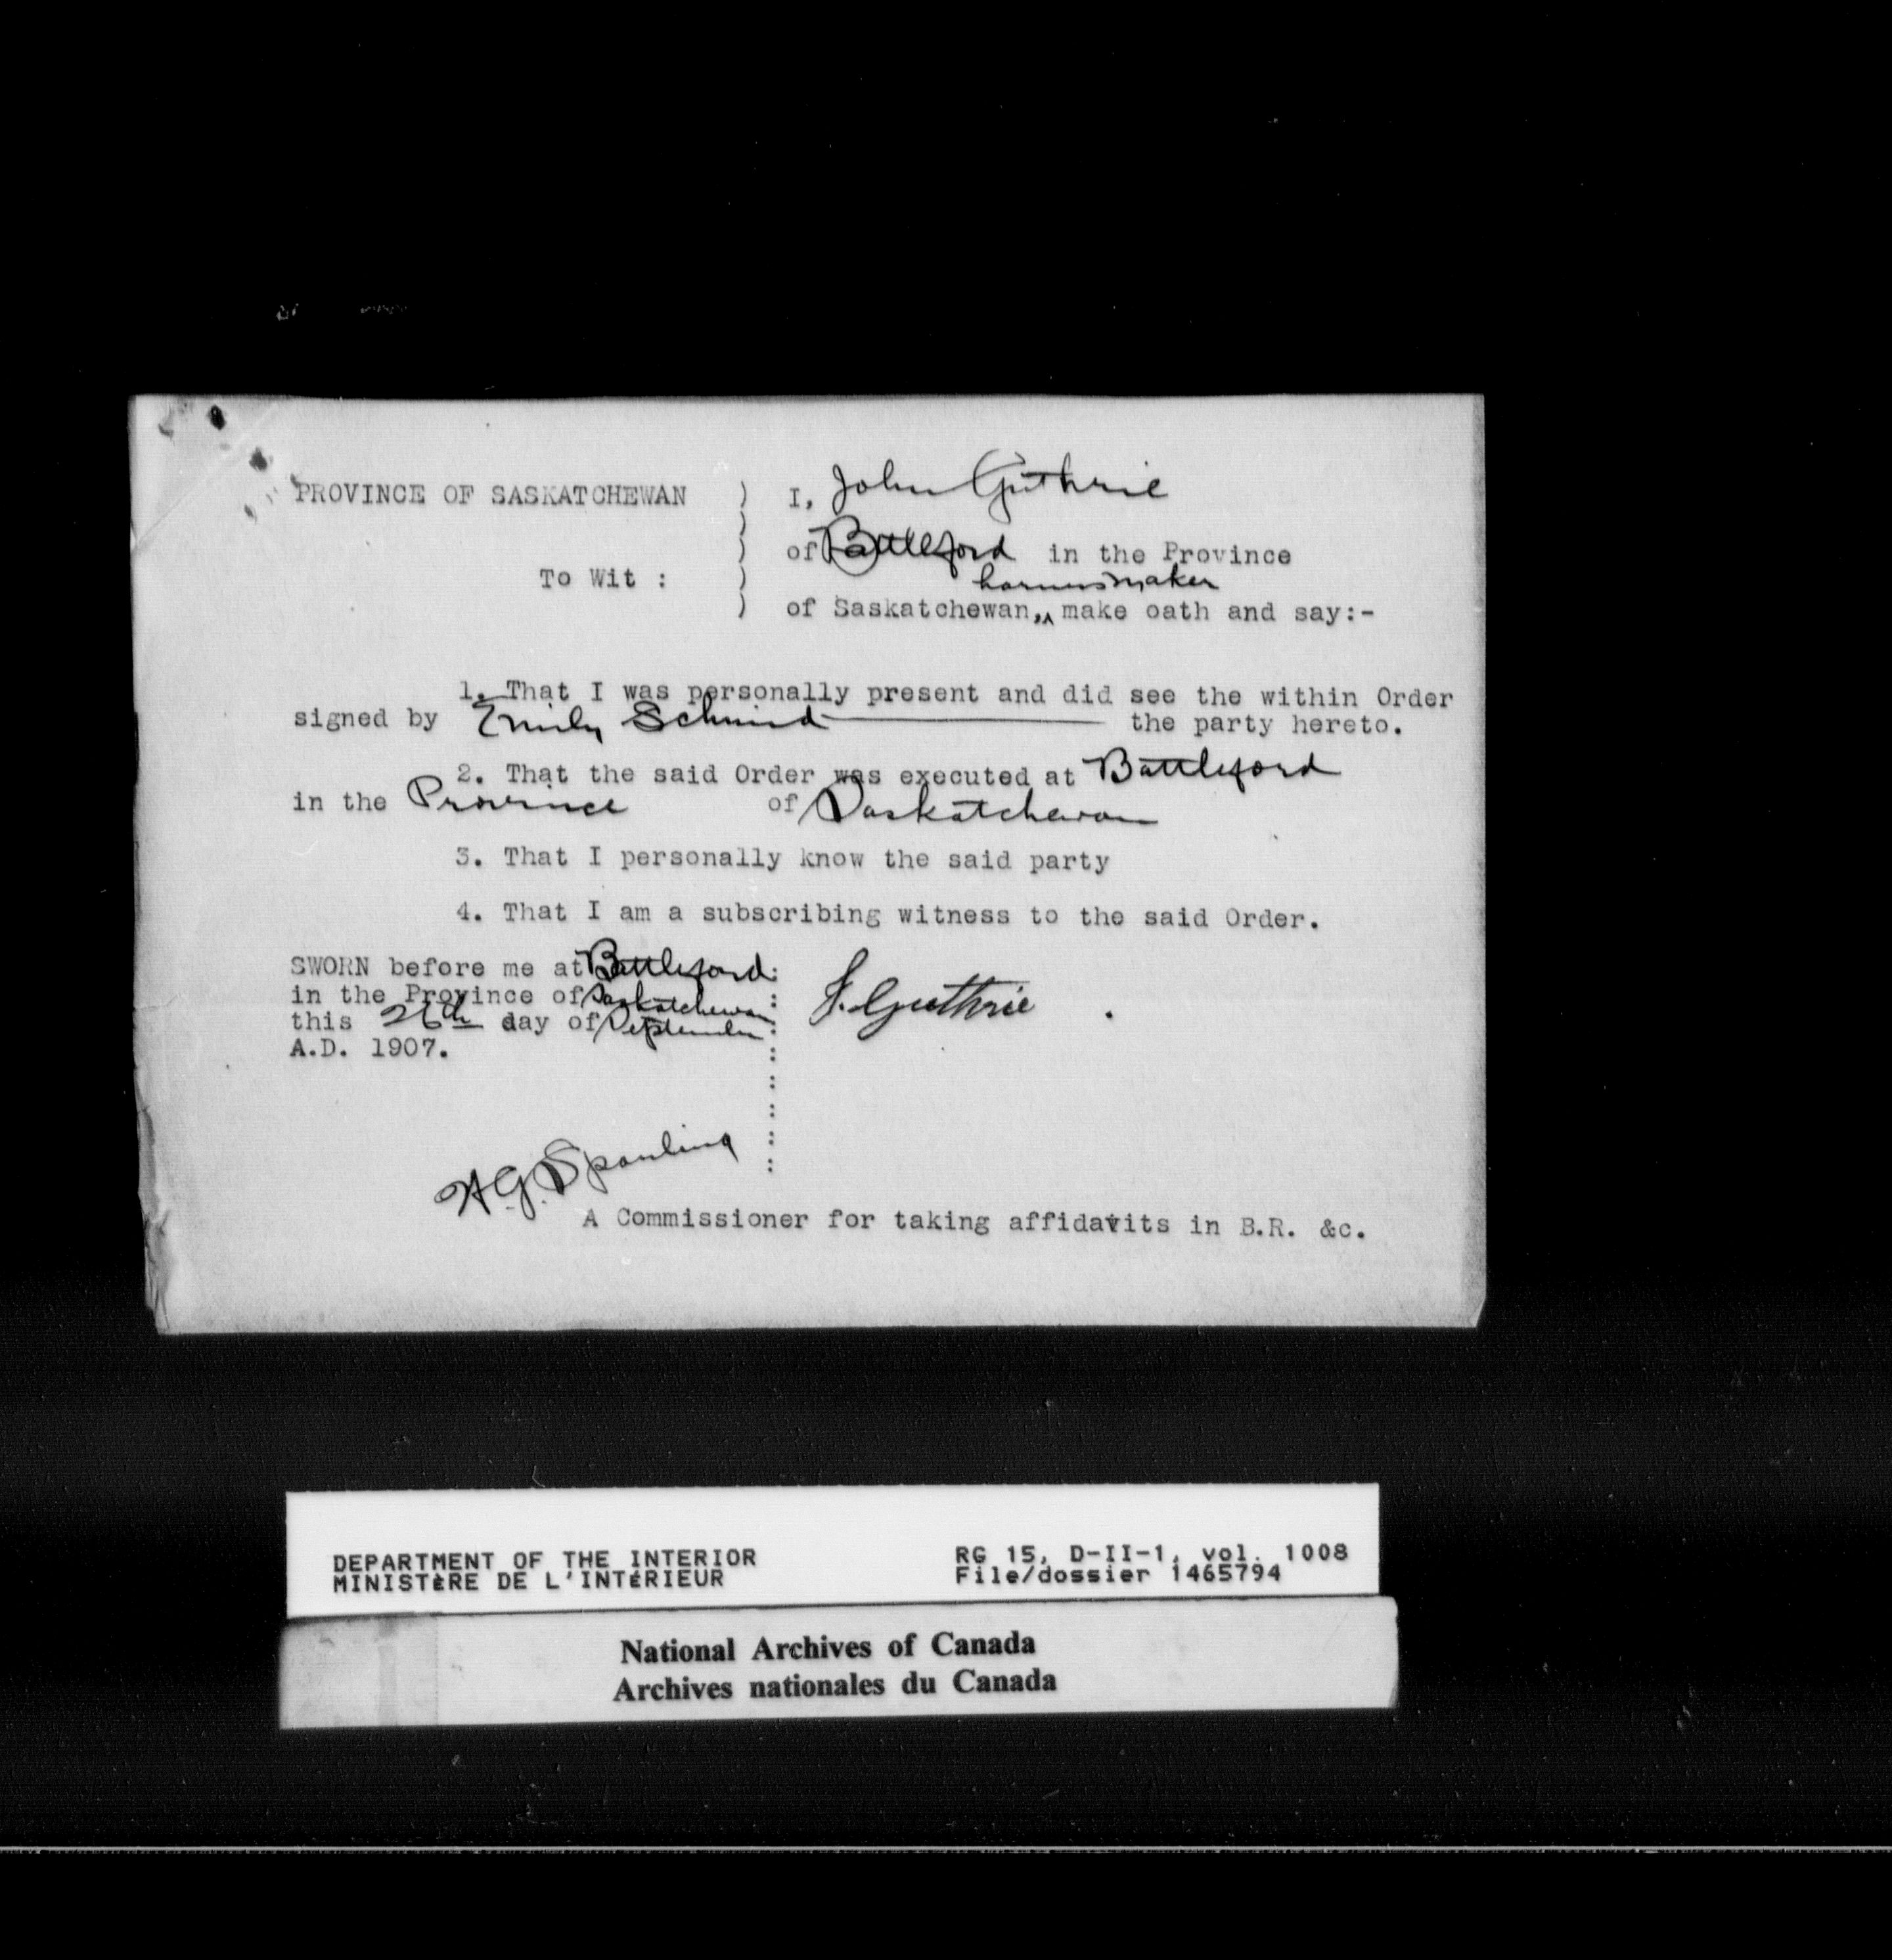 PROVINCE OF SASKATCHEWAN ) I, John Guthrie
)
) of Battleford in the Province
harnessmaker
To Wit : )
) of Saskatchewan,^ make oath and say:-
1. That I was personally present and did see the within Order
signed by Emily Schmid the party hereto.
2. That the said Order was executed at Battleford
in the Province of Saskatchewan
3. That I personally know the said party
4. That I am a subscribing witness to the said Order.
SWORN before me at Battleford :
in the Province of Saskatchewan : J. Guthrie
this 26th day of September :
A.D. 1907. :
:
:
:
:
H.G. Sparling
A Commissioner for taking affidavits in B.R. &c.
DEPARTMENT OF THE INTERIOR RG 15, D-II-1, vol. 1008
MINISTÈRE DE L'INTÉRIEUR File/dossier 1465794
National Archives of Canada
Archives nationales du Canada